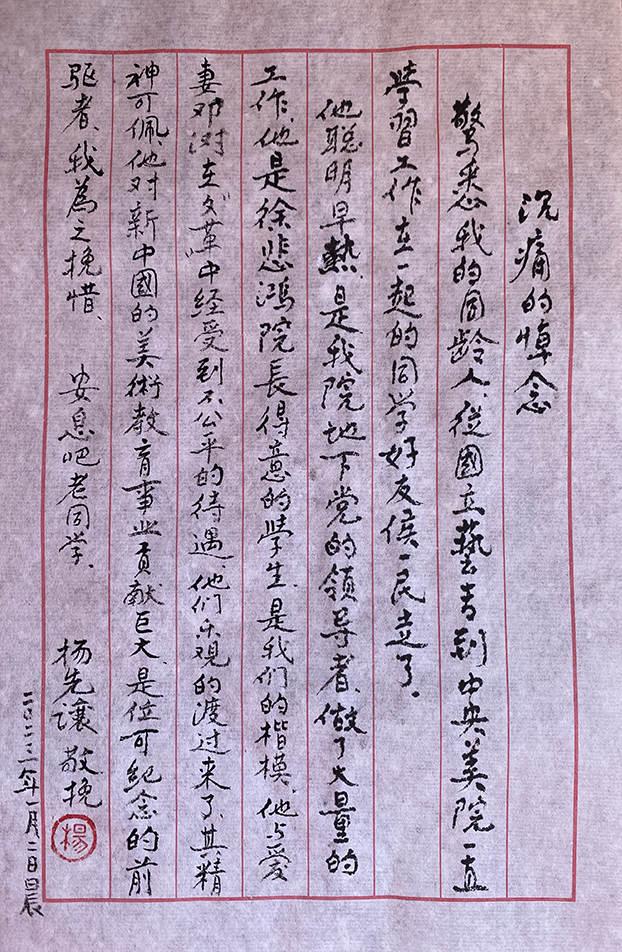 沉痛的悼念
驚悉我的同龄人、從國立藝专到中央美院一直
學習工作在一起的同学好友侯一民走了.
他聪明早熟、是我院地下党的領导者、做了大量的
工作、他是徐悲鴻院長得意的學生、是我们的楷模、他与爱
妻邓澍在"文革"中经受到不公平的待遇、他们乐观的渡过来了、其精
神可佩、他对新中國的美術教育事业貢献巨大、是位可紀念的前
驱者、我為之挽惜、 安息吧老同学、 杨先讓 敬挽 楊
二〇二三年一月二日